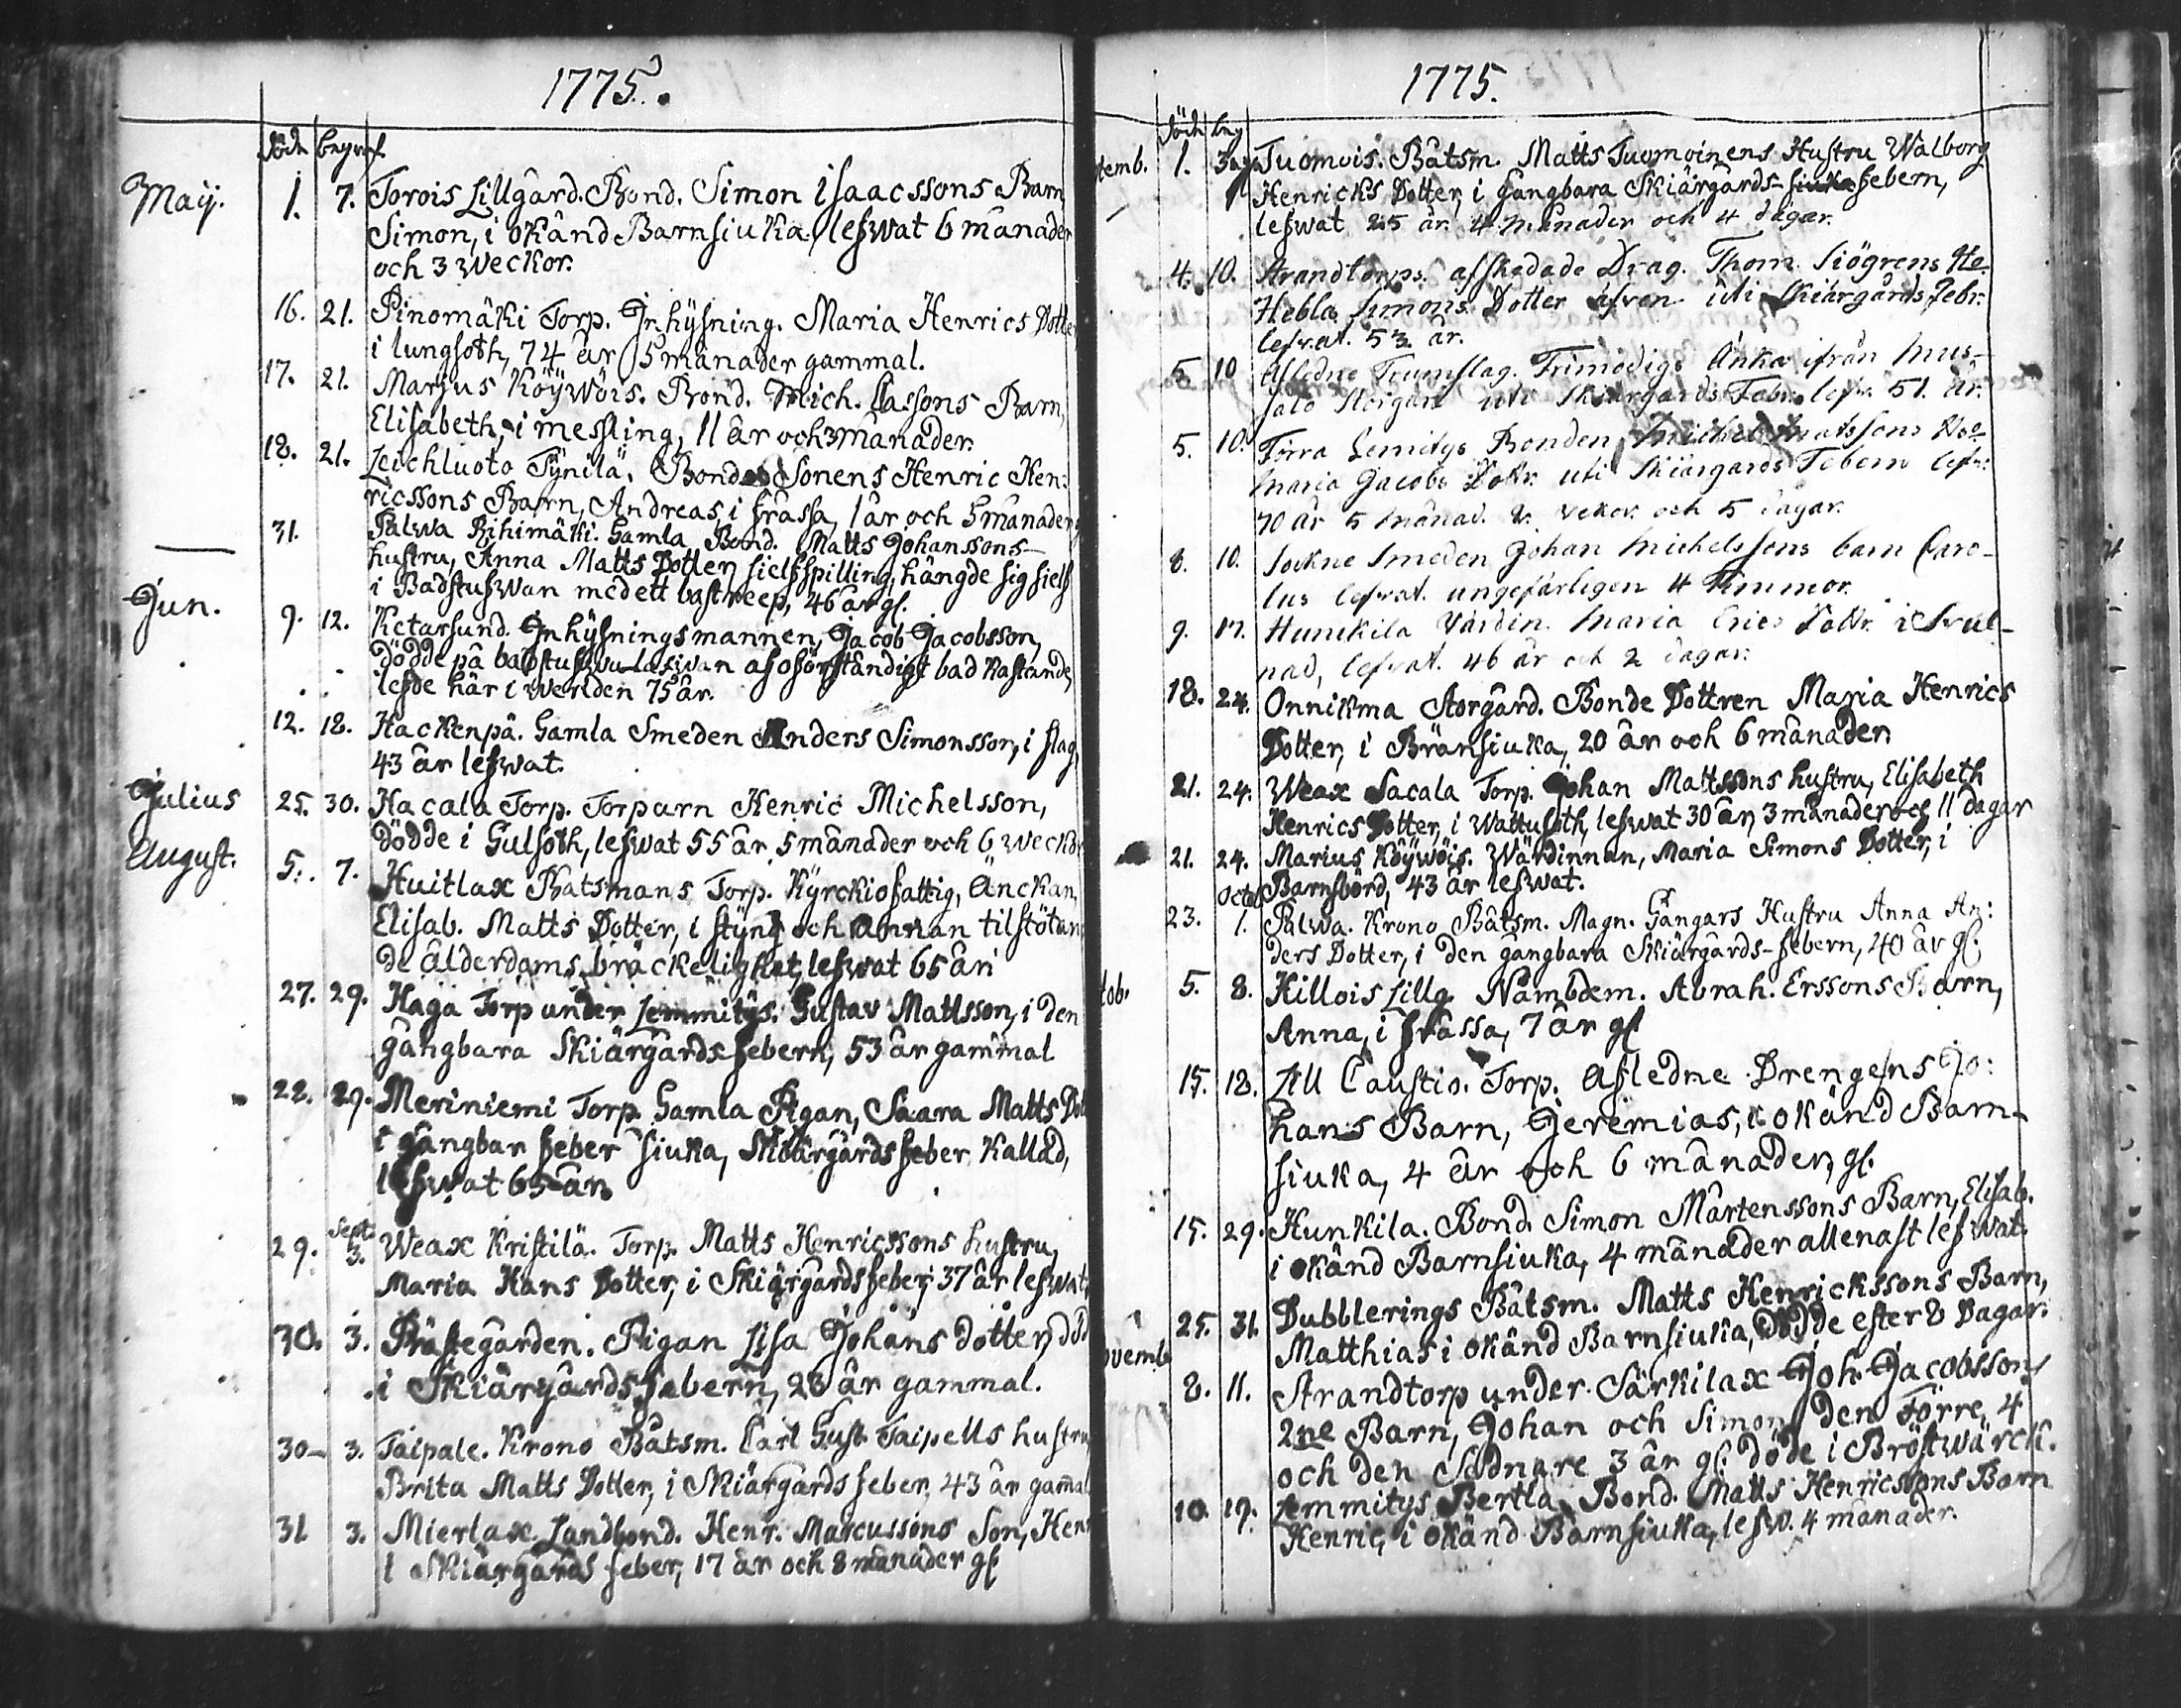 1775.
död begraf.
Maij. 1. 7. Torois Lillgård. Bond. Simon Isaacssons Barn
Simon, i okänd Barnsiuka lefwat 6 månader
och 3 weckor.
16. 21. Pinomäki Torp. Inhysning. Maria Henrics Dotter
i lungsoth, 74 år 5 månader gammal.
17. 21. Marjus Köÿwöis. Bond. Mich. Classons Barn,
Elisabeth, i messling, 11 år och 3 månader.
18. 21. Leichluoto Tÿnilä. Bonde Sonens Henric Hen:
ricssons Barn, Andreas i frassa, 1 år och 5 månader
31. Palwa Rihimäki. Gamla Bond. Matts Johanssons
hustru, Anna Matts Dotter, sielfspilling, hängde sig sielf
i Badstufwan med ett bastreep, 46 år gl.
Jun. 9. 12. Ketarsund. Inhysningsmannen, Jacob Jacobsson,
dödde på badstufwulafwan af oförståndigt bad kastande,
lefde här i werlden 75 år.
12. 18. Hackenpä. Gamla Smeden Anders Simonsson, i slag,
43 år lefwat.
Julius 25. 30. Hacala Torp. Torparn Henric Michelsson,
dödde i Gulsoth, lefwat 55 år 5 månader och 6 weckor
August. 5. 7. Huitlax Båtsmans Torp. Kÿrckiofattig, Änckan,
Elisab. Matts Dotter, i stÿng och annan tilstötan
de ålderdoms bräckelighet, lefwat 65 år
27. 29. Haga Torp under Lemmitÿs. Gustav Mattsson, i den
gångbara Skiärgårdsfebern, 53 år gammal
22. 29. Meriniemi Torp. Gamla Pigan, Saara Matts Dot
i gångbar feber siuka, Skiärgårdsfeber kallad,
lefwat 65 år
29. Sept: 3. Weax Kristilä. Torp. Matts Henricssons hustru,
Maria Hans Dotter, i Skiärgårdsfeber, 37 år lefwat
30. 3. Prästegården. Pigan Lisa Johans dotter, död
i Skiärgårdsfebern, 28 år gammal.
30 3. Taipale. Krono Båtsm. Carl Gust. Taipells hustru
Brita Matts Dotter, i Skiärgårds feber, 43 år gamal
31 3. Mierlax. Landbond. Henr. Marcussons Son, Henr
i Skiärgårds feber, 17 år och 8 månader gl
1775.
död beg
temb. 1. 3. Tuomois. Båtsm. Matts Tuomoinens Hustru Walborg
Henricks Dotter, i Gångbara Skiärgårds-siuka febern,
lefwat 25 år 4 månader och 4 dagar.
4. 10. Strandtorps. afskedade Drag. Thom. Siögrens He
Hebla Simons Dotter äfven uti Skiärgårds Febr.
lefvat. 53 år.
5 10 Afledne Trumslag. Frimodigs Änka ifrån Mus-
salo Storgård uti Skiärgårds Febr. lefv. 51. år.
5. 10. Förra Lemitys Bonden Michel Matssons Hoe
Maria Jacobs Dottr. uti Skiärgårds Febern lefv:
70 år 5 månad. 2. vekor och 5 dagar.
8. 10. Sockne Smeden Johan Michelssons barn Caro-
lus lefvat. ungefärligen 4 timmor.
9. 17. Hunkila Värdin. Maria Erics Dottr. i Svul-
nad, lefvat. 46 år och 2 dagar.
18. 24. Onnikma Storgård. Bonde Dottren Maria Henrics
Dotter, i Bränsiuka, 20 år och 6 månader
21. 24. Weax Sacala Torp. Johan Mattssons hustru, Elisabeth
Henrics Dotter, i Wattusoth, lefwat 30 år, 3 månader och 11 dagar
21. 24. Marius Köÿwöis. Wärdinnan, Maria Simons Dotter, i
Barnsbörd, 43 år lefwat.
23. Octob 1. Palwa. Krono Båtsm. Magn. Gångars Hustru Anna An:
ders Dotter, i den gångbara Skiärgårds-febern, 40 år gl.
tob. 5. 8. Killois Lillg. Nämbdem. Abrah. Erssons Barn,
Anna, i frassa, 7 år gl
15. 18. Lill Caustio. Torp. Afledne Drengens Jo:
hans Barn, Jeremias, i okänd Barn-
siuka, 4 år och 6 månader, gl.
15. 29. Hunkila. Bond. Simon Mårtenssons Barn, Elisab.
i okänd Barnsiuka, 4 månader allenast lefwat.
25. 31. Dubblerings Båtsm. Matts Henrickssons Barn,
Matthias i okänd Barnsiuka, Dödde efter 8 Dagar.
ovemb. 8. 11. Strandtorp under Särkilax Joh. Jacobssons
2ne Barn, Johan och Simon, den Förre, 4
och den Sednare 3 år gl. döde i Bröstwärck.
10. 19. Lemmitys Bertla Bond. Matts Henricssons Barn
Henric, i okänd Barnsiuka, lefw. 4 månader.